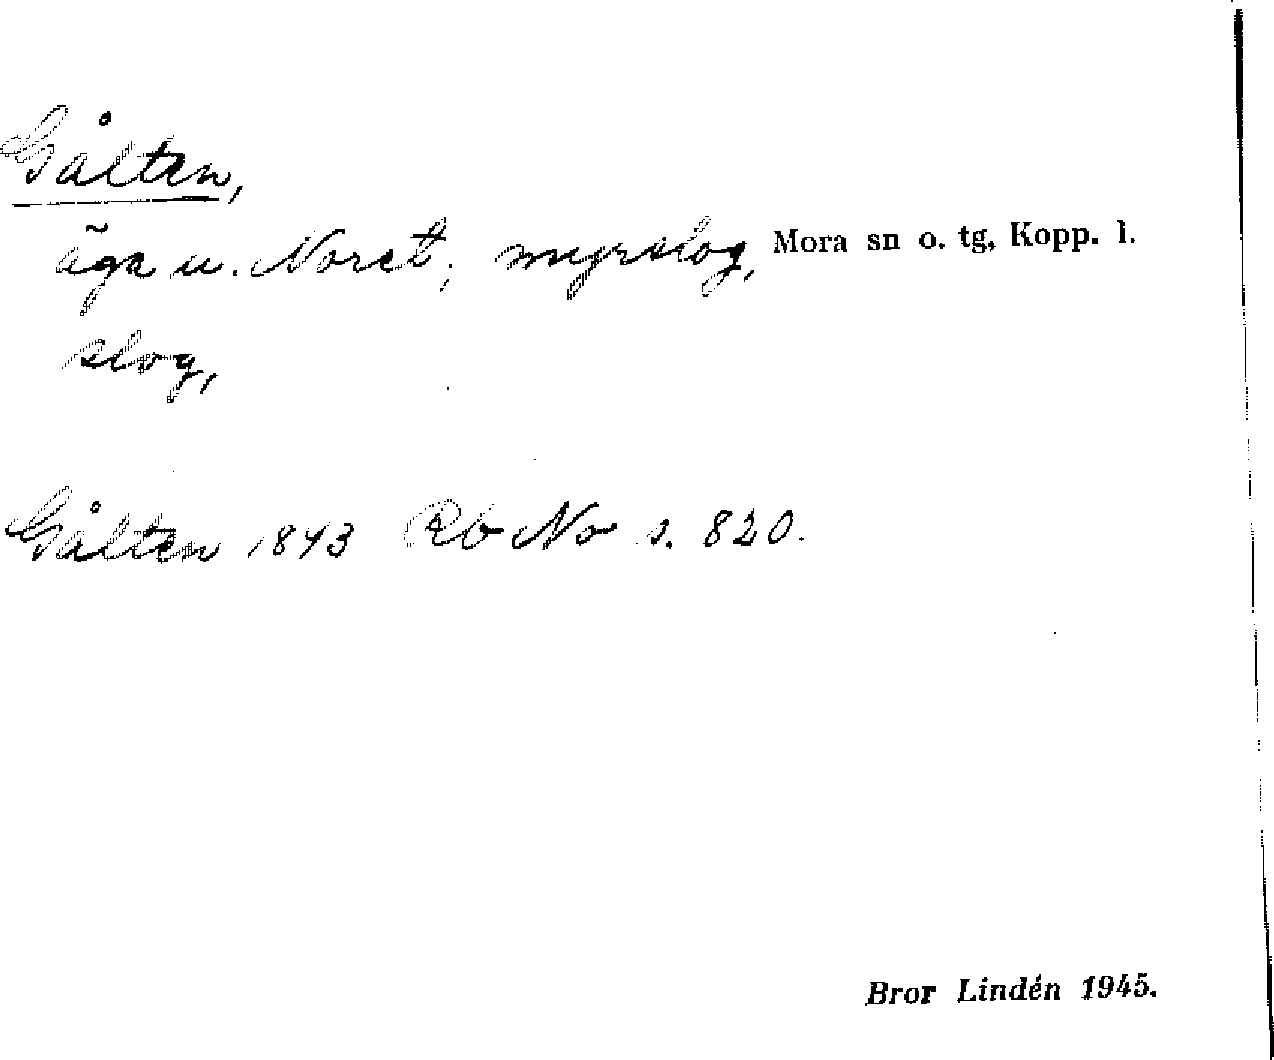 Gålten,
äga u. Noret, myrslog, Mora sn o. tg, Kopp. l.
slog,
Gålten 1843 Rb No s. 820.
Bror Lindén 1945.